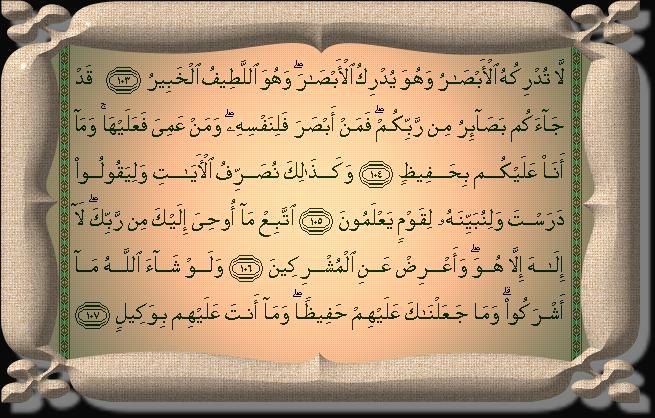 لَّا تُدْرِكُهُ ٱلْأَبْصَـٰرُ وَهُوَ يُدْرِكُ ٱلْأَبْصَـٰرَ ۖ وَهُوَ ٱللَّطِيفُ ٱلْخَبِيرُ ١٠٣ قَدْ
جَآءَكُم بَصَآئِرُ مِن رَّبِّكُمْ ۖ فَمَنْ أَبْصَرَ فَلِنَفْسِهِۦ ۖ وَمَنْ عَمِىَ فَعَلَيْهَا ۚ وَمَآ
أَنَا۠ عَلَيْكُم بِحَفِيظٍ ١٠٤ وَكَذَٰلِكَ نُصَرِّفُ ٱلْأَيَـٰتِ وَلِيَقُولُوا۟
دَرَسْتَ وَلِنُبَيِّنَهُۥ لِقَوْمٍ يَعْلَمُونَ ١٠٥ ٱتَّبِعْ مَآ أُوحِىَ إِلَيْكَ مِن رَّبِّكَ ۖ لَآ
إِلَـٰهَ إِلَّا هُوَ ۖ وَأَعْرِضْ عَنِ ٱلْمُشْرِكِينَ ١٠٦ وَلَوْ شَآءَ ٱللَّهُ مَآ
أَشْرَكُوا۟ ۗ وَمَا جَعَلْنَـٰكَ عَلَيْهِمْ حَفِيظًا ۖ وَمَآ أَنتَ عَلَيْهِم بِوَكِيلٍ ١٠٧